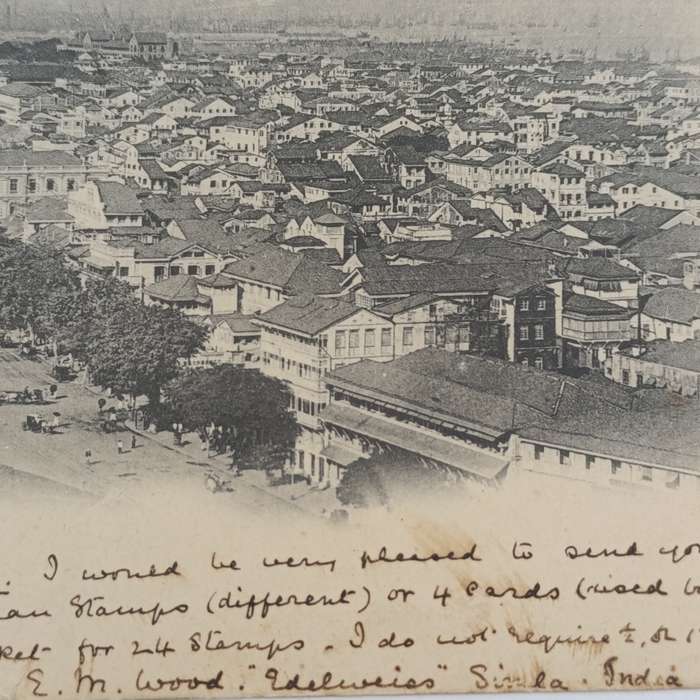 I would be very pleased to send you
Stamps (different) or 4 Cards (used
for 24 Stamps. I do not require ½, or
E. M. Wood. "Edelweiss" Simla. India